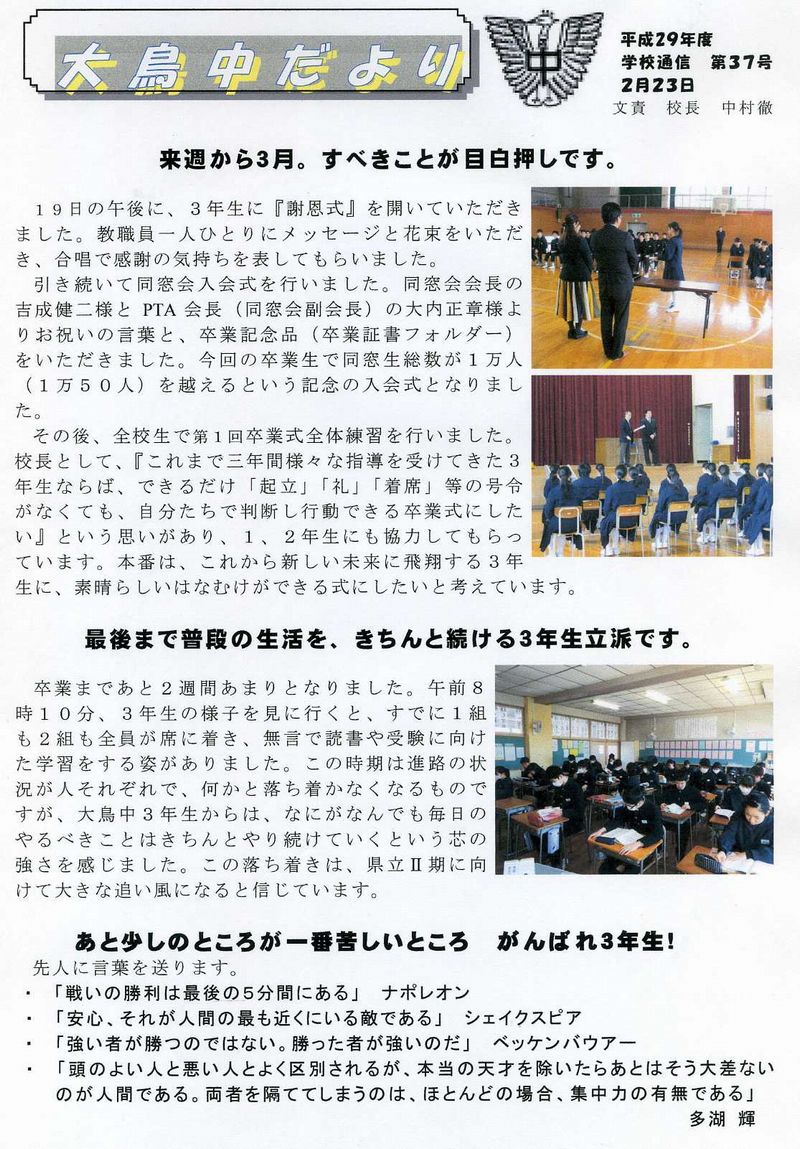 大鳥中だより
中
平成29年度
学校通信　第37号
2月23日
文責　校長　中村徹
来週から3月。すべきことが目白押しです。
１９日の午後に、３年生に『謝恩式』を開いていただき
ました。教職員一人ひとりにメッセージと花束をいただ
き、合唱で感謝の気持ちを表してもらいました。
引き続いて同窓会入会式を行いました。同窓会会長の
吉成健二様と PTA 会長（同窓会副会長）の大内正章様よ
りお祝いの言葉と、卒業記念品（卒業証書フォルダー）
をいただきました。今回の卒業生で同窓生総数が１万人
（１万５０人）を越えるという記念の入会式となりまし
た。
その後、全校生で第１回卒業式全体練習を行いました。
校長として、『これまで三年間様々な指導を受けてきた３
年生ならば、できるだけ「起立」「礼」「着席」等の号令
がなくても、自分たちで判断し行動できる卒業式にした
い』という思いがあり、１、２年生にも協力してもらっ
ています。本番は、これから新しい未来に飛翔する３年
生に、素晴らしいはなむけができる式にしたいと考えています。
最後まで普段の生活を、きちんと続ける3年生立派です。
卒業まであと２週間あまりとなりました。午前８
時１０分、３年生の様子を見に行くと、すでに１組
も２組も全員が席に着き、無言で読書や受験に向け
た学習をする姿がありました。この時期は進路の状
況が人それぞれで、何かと落ち着かなくなるもので
すが、大鳥中３年生からは、なにがなんでも毎日の
やるべきことはきちんとやり続けていくという芯の
強さを感じました。この落ち着きは、県立Ⅱ期に向
けて大きな追い風になると信じています。
あと少しのところが一番苦しいところ　がんばれ3年生！
先人に言葉を送ります。
・「戦いの勝利は最後の５分間にある」　ナポレオン
・「安心、それが人間の最も近くにいる敵である」　シェイクスピア
・「強い者が勝つのではない。勝った者が強いのだ」　ベッケンバウアー
・「頭のよい人と悪い人とよく区別されるが、本当の天才を除いたらあとはそう大差ない
のが人間である。両者を隔ててしまうのは、ほとんどの場合、集中力の有無である」
多湖　輝